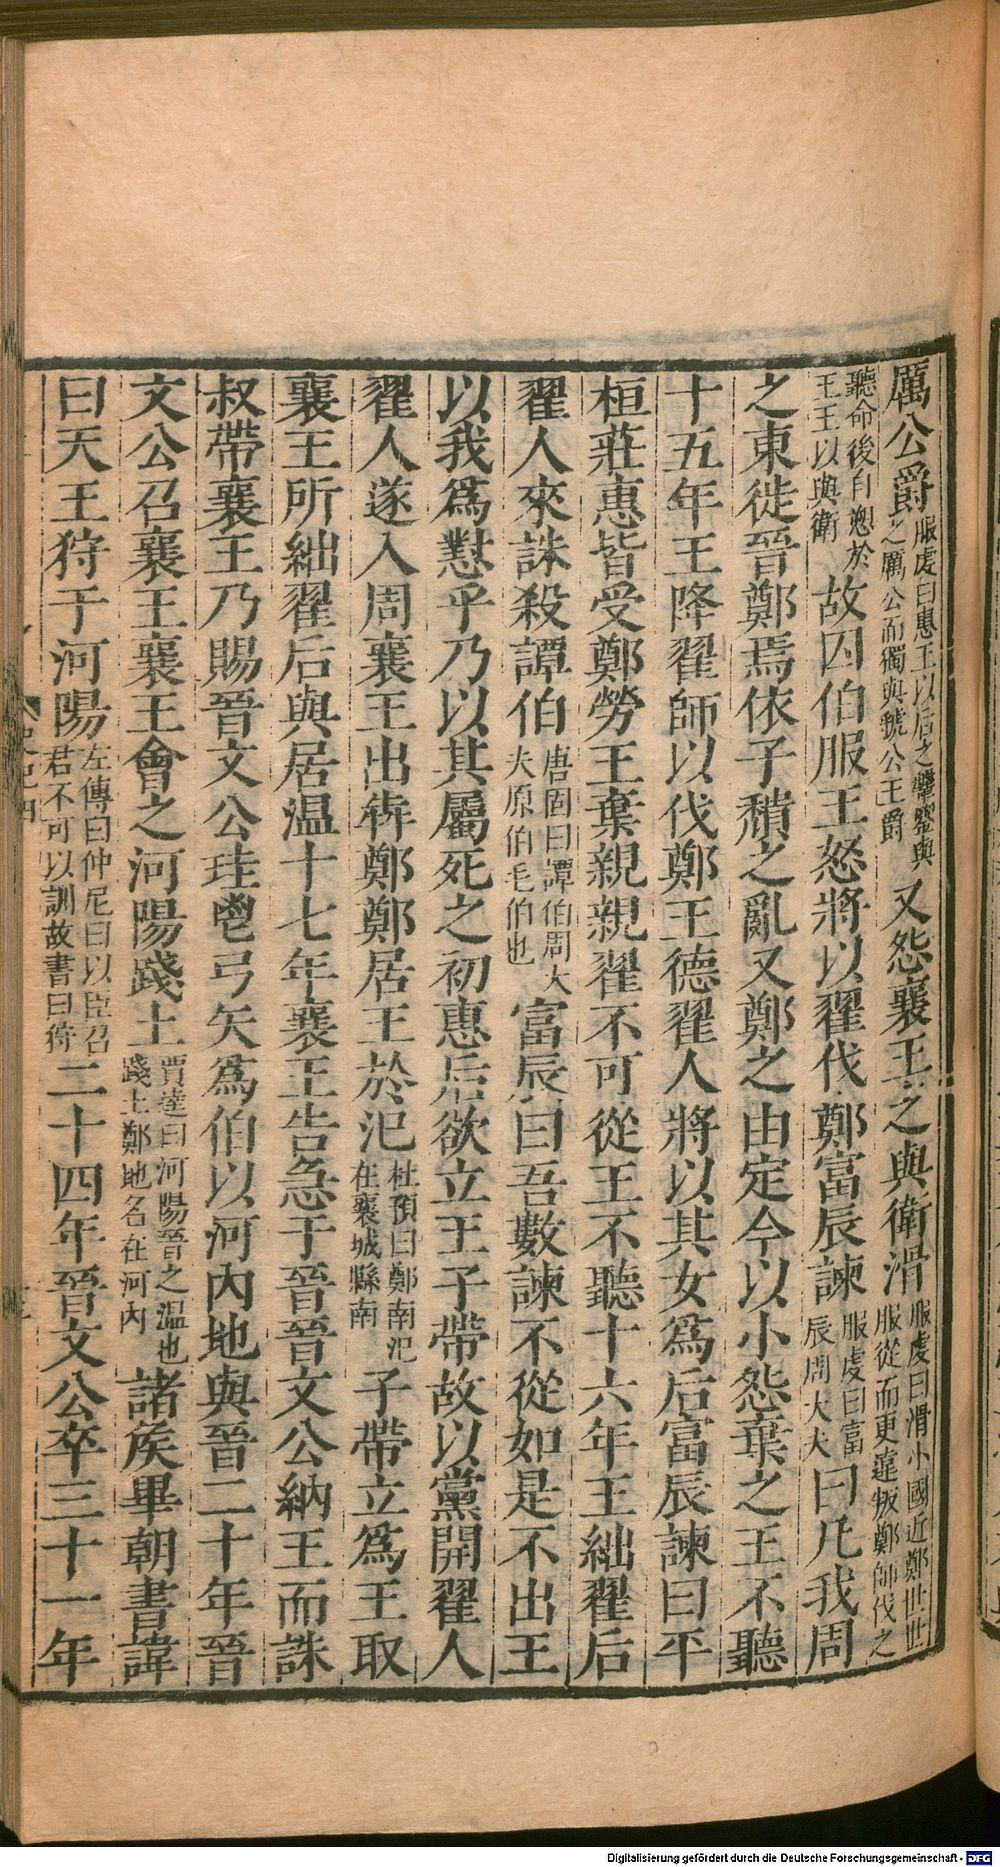 厲公爵服虔曰惠王以后之鞶鑑與之厲公而獨與虢公王爵又怨襄王之與衛滑服虔曰滑小國近鄭世世服從而更違叛鄭師伐之
聽命後自愬於王王以與衛故囚伯服王怒將以翟伐鄭富辰諫服虔曰富辰周大夫曰凡我周
之東徙晉鄭焉依子穨之亂又鄭之由定今以小怨棄之王不聽
十五年王降翟師以伐鄭王德翟人將以其女爲后富辰諫曰平
桓莊惠皆受鄭勞王棄親親翟不可從王不聽十六年王絀翟后
翟人來誅殺譚伯唐固曰譚伯周大夫原伯毛伯也富辰曰吾數諫不從如是不出王
以我爲懟乎乃以其屬死之初惠后欲立王子帶故以黨開翟人
翟人遂入周襄王出犇鄭鄭居王於氾杜預曰鄭南氾在襄城縣南子帶立爲王取
襄王所絀翟后與居温十七年襄王告急于晉晉文公納王而誅
叔帶襄王乃賜晉文公珪鬯弓矢爲伯以河內地與晉二十年晉
文公召襄王襄王會之河陽踐土賈逵曰河陽晉之温也踐土鄭地名在河內諸矦畢朝書諱
曰天王狩于河陽左傳曰仲尼曰以臣召君不可以訓故書曰狩二十四年晉文公卒三十一年
Digitalisierung gefördert durch die Deutsche Forschungsgemeinschaft - DFG